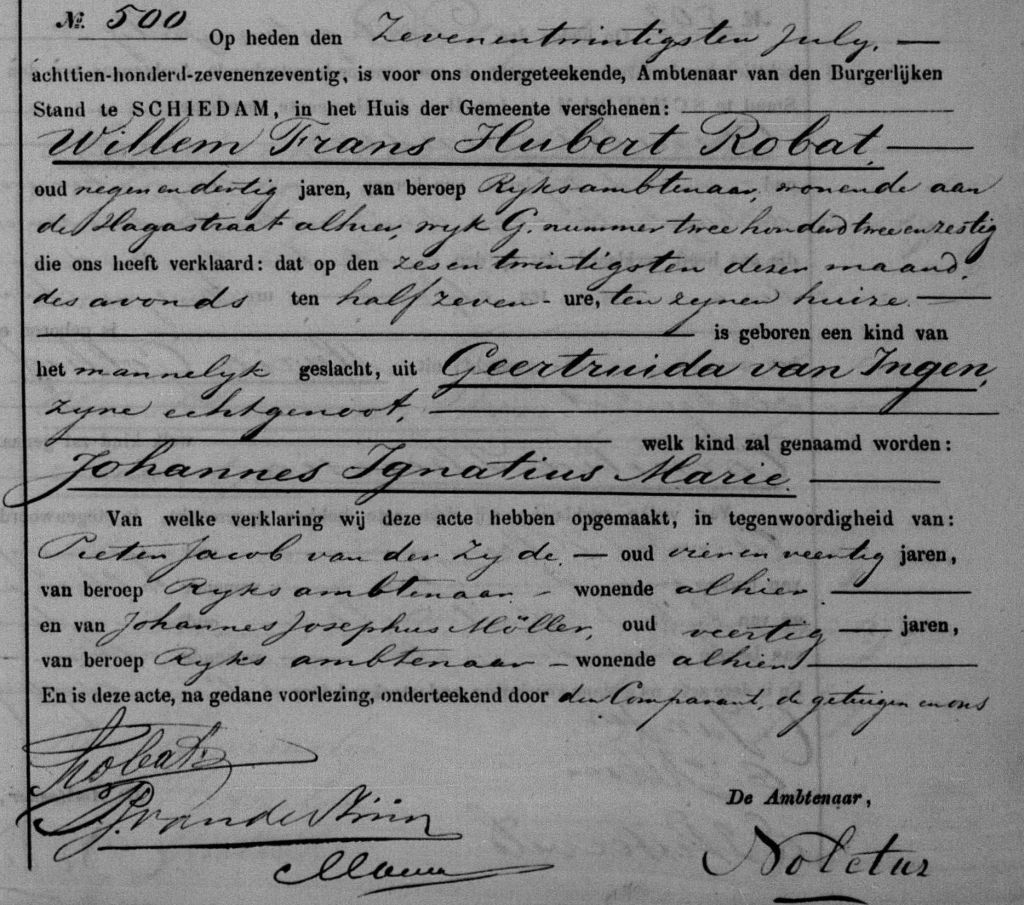 No. 500 Op heden den Zevenentwintigsten July,
achttien-honderd-zevenenzeventig, is voor ons ondergeteekende, Ambtenaar van den Burgerlijken
Stand te SCHIEDAM, in het Huis der Gemeente verschenen:
Willem Frans Hubert Robat,
oud negen en dertig jaren, van beroep Ryksambtenaar, wonende aan
de Hagastraat alhier, wyk G. nummer twee honderd twee en zestig
die ons heeft verklaard: dat op den zes en twintigsten dezer maand,
des avonds ten half zeven - ure, ten zynen huize.
is geboren een kind van
het mannelyk geslacht, uit Geertruida van Ingen,
zyne echtgenoot,
welk kind zal genaamd worden:
Johannes Ignatius Marie.
Van welke verklaring wij deze acte hebben opgemaakt, in tegenwoordigheid van:
Pieter Jacob van der Zyde, oud vier en veertig jaren,
van beroep Ryks ambtenaar - wonende alhier
en van Johannes Josephus Möller, oud veertig jaren,
van beroep Ryks ambtenaar - wonende alhier
En is deze acte, na gedane voorlezing, onderteekend door den Comparant, de getuigen en ons
Robat
De Ambtenaar,